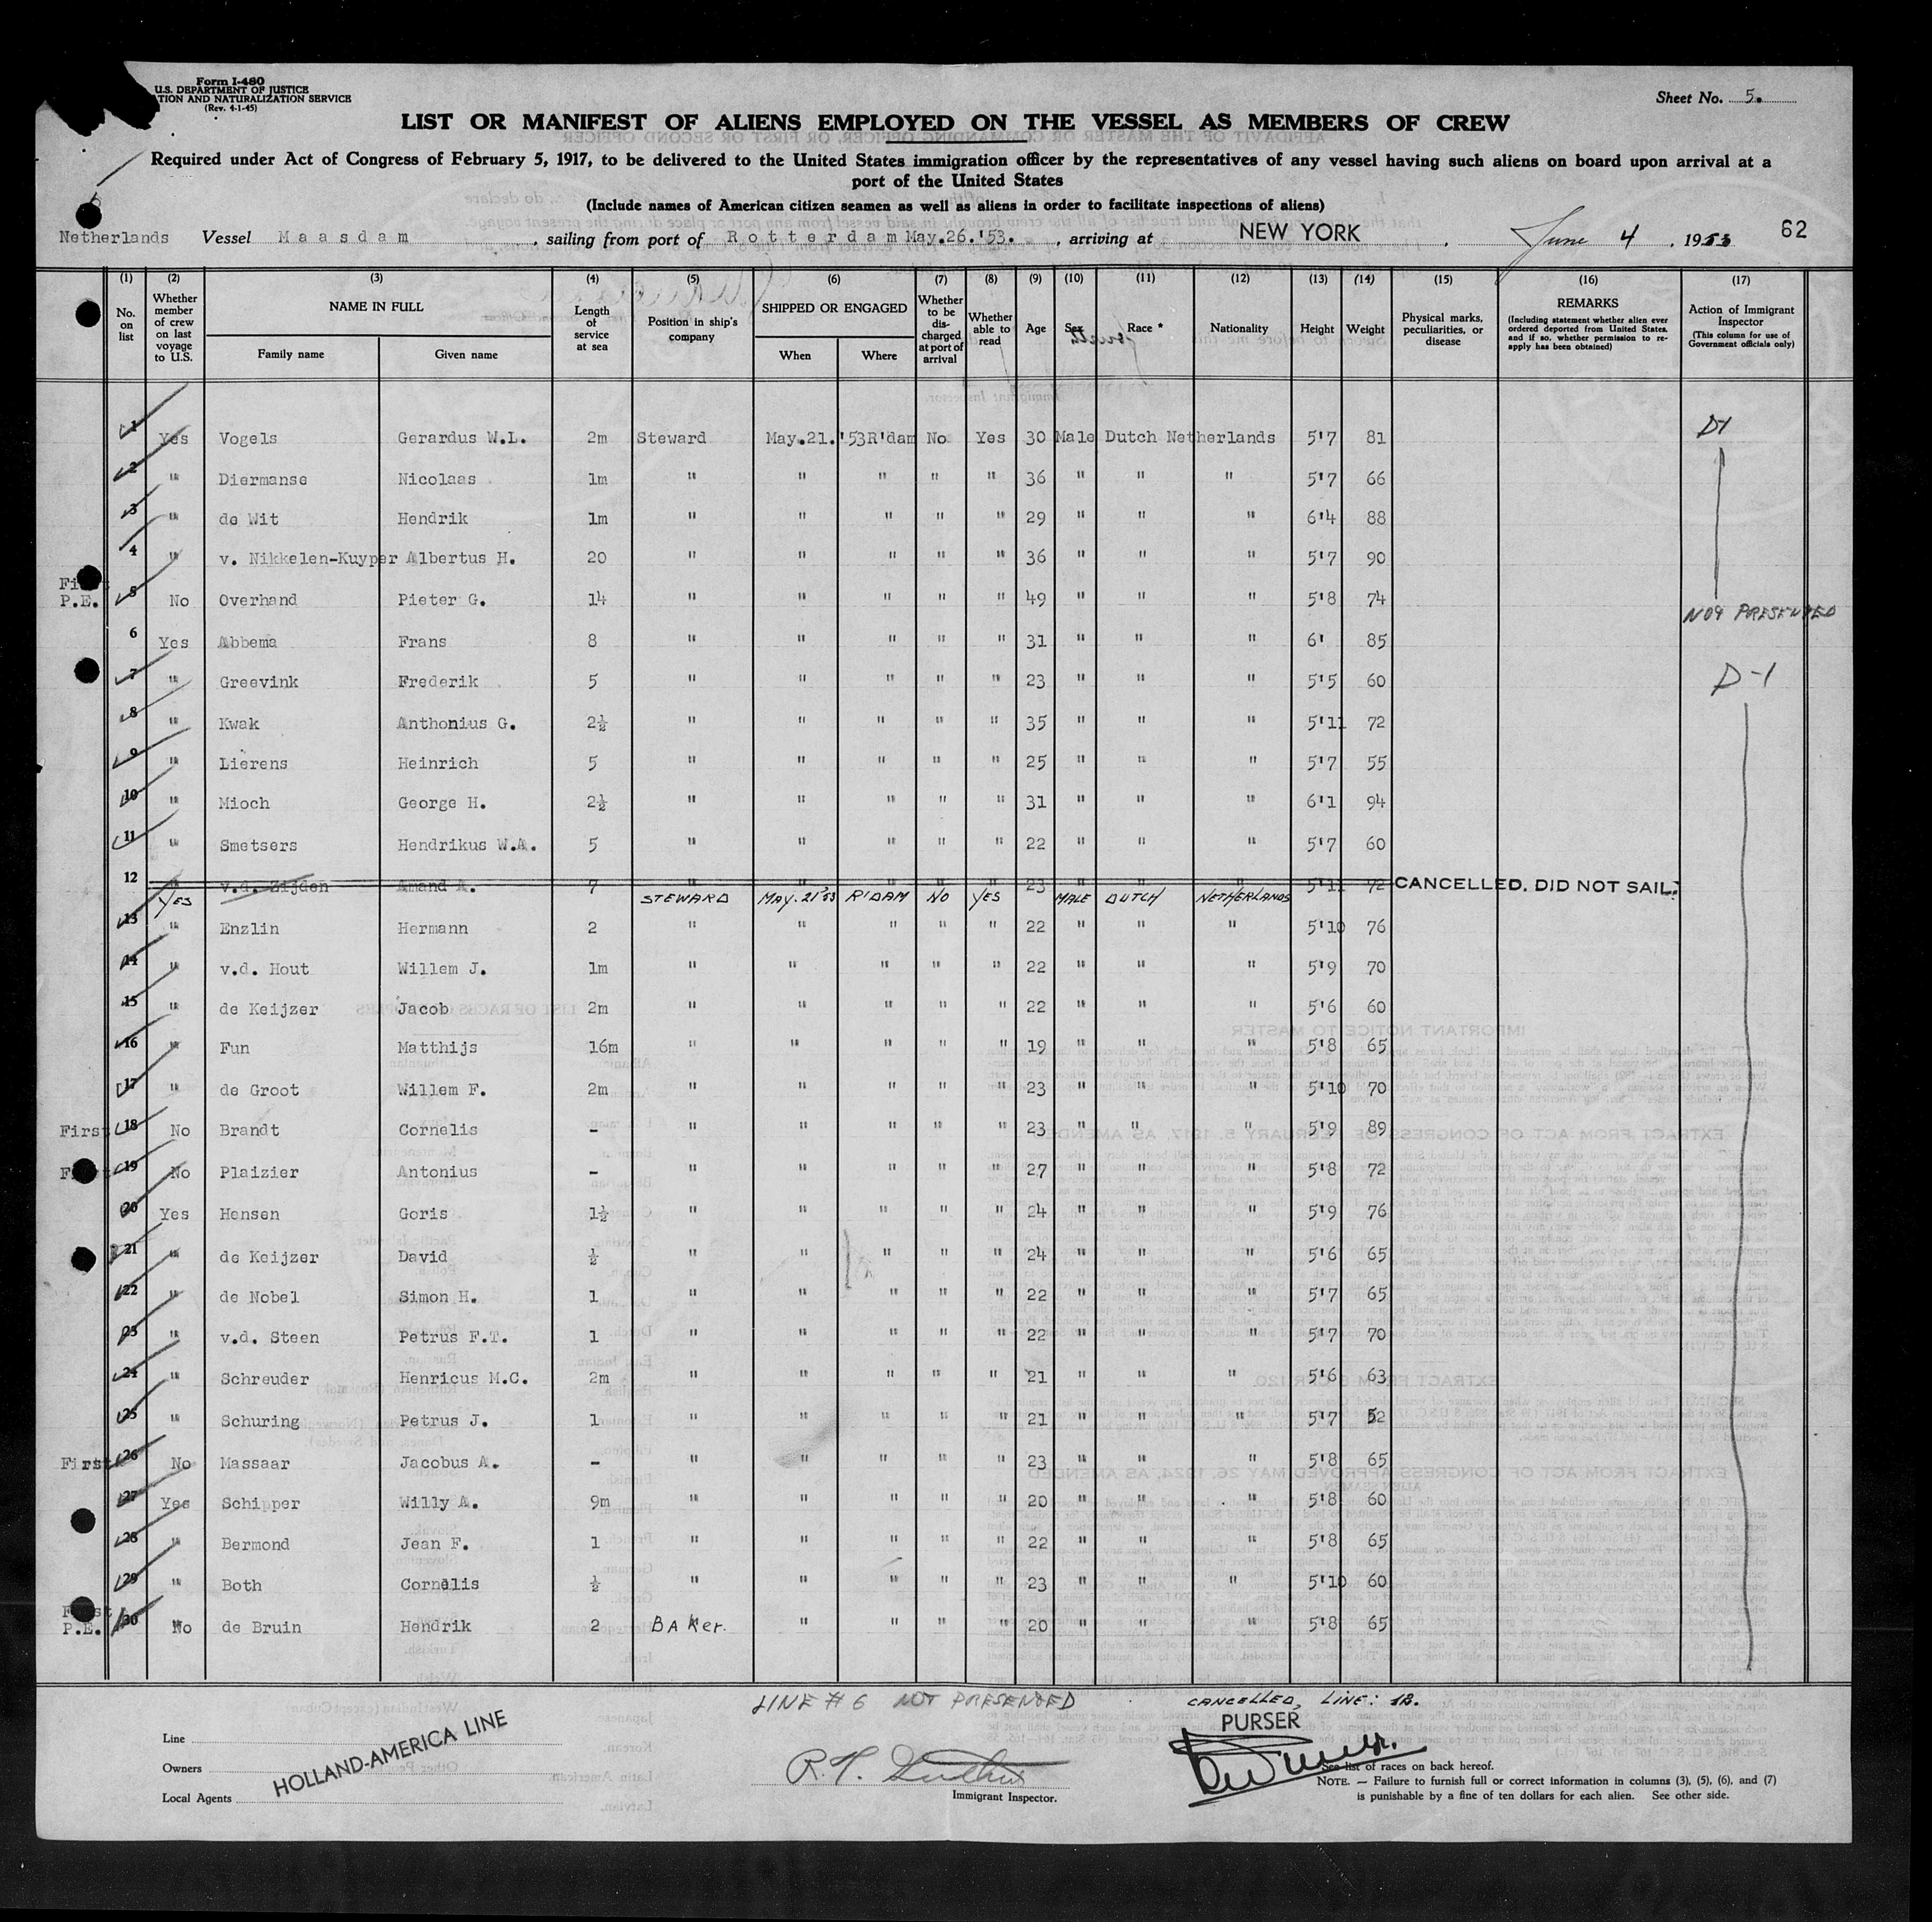 Form I-480
U.S. DEPARTMENT OF JUSTICE
ATION AND NATURALIZATION SERVICE
(Rev. 4-1-45)
Sheet No. 5.
LIST OR MANIFEST OF ALIENS EMPLOYED ON THE VESSEL AS MEMBERS OF CREW
Required under Act of Congress of February 5, 1917, to be delivered to the United States immigration officer by the representatives of any vessel having such aliens on board upon arrival at a
port of the United States
(Include names of American citizen seamen as well as aliens in order to facilitate inspections of aliens)
Netherlands Vessel Maasdam, sailing from port of Rotterdam May.26.'53., arriving at NEW YORK, June 4, 1953 62
(1) (2) (3) (4) (5) (6) (7) (8) (9) (10) (11) (12) (13) (14) (15) (16) (17)
No. on list
Whether member of crew on last voyage to U.S.
NAME IN FULL
Family name
Given name
Length of service at sea
Position in ship's company
SHIPPED OR ENGAGED
When
Where
Whether to be discharged at port of arrival
Whether able to read
Age
Sex
Race *
Nationality
Height
Weight
Physical marks, peculiarities, or disease
REMARKS
(Including statement whether alien ever ordered deported from United States, and if so, whether permission to re-apply has been obtained)
Action of Immigrant Inspector
(This column for use of Government officials only)
1 Yes Vogels Gerardus W.L. 2m Steward May.21.'53 R'dam No Yes 30 Male Dutch Netherlands 5'7 81 D1
2 " Diermanse Nicolaas 1m " " " " " 36 " " " 5'7 66
3 " de Wit Hendrik 1m " " " " " 29 " " " 6'4 88
4 " v. Nikkelen-Kuyper Albertus H. 20 " " " " " 36 " " " 5'7 90
First P.E. 5 No Overhand Pieter G. 14 " " " " " 49 " " " 5'8 74
6 Yes Abbema Frans 8 " " " " " 31 " " " 6' 85 NOT PRESENTED
7 " Greevink Frederik 5 " " " " " 23 " " " 5'5 60 D-1
8 " Kwak Anthonius G. 2½ " " " " " 35 " " " 5'11 72
9 " Lierens Heinrich 5 " " " " " 25 " " " 5'7 55
10 " Mioch George H. 2½ " " " " " 31 " " " 6'1 94
11 " Smetsers Hendrikus W.A. 5 " " " " " 22 " " " 5'7 60
12 " v.d. Zijden Amand A. 7 " " " " " 23 " " " 5'11 72 CANCELLED. DID NOT SAIL.
YES STEWARD MAY.21'53 R'DAM NO YES MALE DUTCH NETHERLANDS
13 " Enzlin Hermann 2 " " " " " 22 " " " 5'10 76
14 " v.d. Hout Willem J. 1m " " " " " 22 " " " 5'9 70
15 " de Keijzer Jacob 2m " " " " " 22 " " " 5'6 60
16 " Fun Matthijs 16m " " " " " 19 " " " 5'8 65
17 " de Groot Willem F. 2m " " " " " 23 " " " 5'10 70
First 18 No Brandt Cornelis - " " " " " 23 " " " 5'9 89
First 19 No Plaizier Antonius - " " " " " 27 " " " 5'8 72
20 Yes Hensen Goris 1½ " " " " " 24 " " " 5'9 76
21 " de Keijzer David ½ " " " " " 24 " " " 5'6 65
22 " de Nobel Simon H. 1 " " " " " 22 " " " 5'7 65
23 " v.d. Steen Petrus F.T. 1 " " " " " 22 " " " 5'7 70
24 " Schreuder Henricus M.C. 2m " " " " " 21 " " " 5'6 63
25 " Schuring Petrus J. 1 " " " " " 21 " " " 5'7 52
First 26 No Massaar Jacobus A. - " " " " " 23 " " " 5'8 65
27 Yes Schipper Willy A. 9m " " " " " 20 " " " 5'8 60
28 " Bermond Jean F. 1 " " " " " 22 " " " 5'8 65
29 " Both Cornelis ½ " " " " " 23 " " " 5'10 60
First P.E. 30 No de Bruin Hendrik 2 BAKer. " " " " 20 " " " 5'8 65
LINE # 6 NOT PRESENTED
CANCELLED, LINE: 12.
PURSER
Line
Owners
Local Agents
HOLLAND-AMERICA LINE
Immigrant Inspector.
See list of races on back hereof.
NOTE. — Failure to furnish full or correct information in columns (3), (5), (6), and (7)
is punishable by a fine of ten dollars for each alien. See other side.